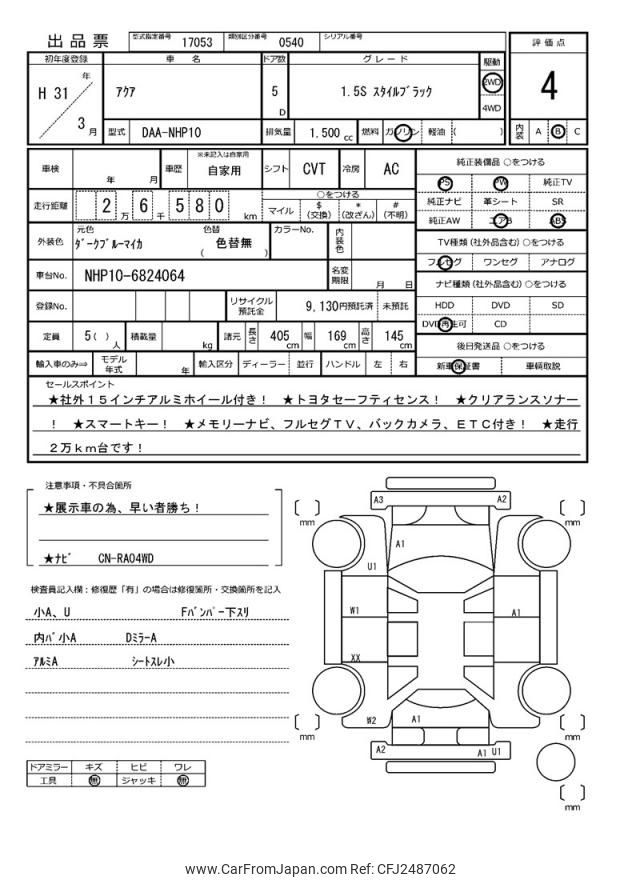 出品票 型式指定番号 17053 類別区分番号 0540 シリアル番号
評価点
4
内装 A B C
初年度登録 車名 ドア数 グレード 駆動
H 31 年 3 月 アクア 5 D 1.5S スタイルブラック 2WD 4WD
型式 DAA-NHP10 排気量 1.500 cc 燃料 ガソリン 軽油 ( )
車検 年 月 車歴 ※未記入は自家用 自家用 シフト CVT 冷房 AC
走行距離 2 万 6 千 5 8 0 km ○をつける
マイル $(交換) *(改ざん) #(不明)
外装色 元色 ダークブルーマイカ 色替 色替無 ( ) カラーNo. 内装色
車台No. NHP10-6824064 名変期限 月 日
登録No. リサイクル預託金 9,130円預託済 未預託
定員 5( )人 積載量 kg 諸元 長さ 405cm 幅 169cm 高さ 145cm
輸入車のみ⇒ モデル年式 年 輸入区分 ディーラー 並行 ハンドル 左 右
純正装備品 ○をつける
PS PW 純正TV
純正ナビ 革シート SR
純正AW エアB ABS
TV種類(社外品含む)○をつける
フルセグ ワンセグ アナログ
ナビ種類(社外品含む)○をつける
HDD DVD SD
DVD再生可 CD
後日発送品 ○をつける
新車保証書 車輌取説
セールスポイント
★社外15インチアルミホイール付き! ★トヨタセーフティセンス! ★クリアランスソナー
! ★スマートキー! ★メモリーナビ、フルセグTV、バックカメラ、ETC付き! ★走行
2万km台です!
注意事項・不具合箇所
★展示車の為、早い者勝ち!
★ナビ CN-RA04WD
検査員記入欄:修復歴「有」の場合は修復箇所・交換箇所を記入
小A、U Fバンパー下スリ
内バ小A DミラーA
アルミA シートスレ小
ドアミラー キズ ヒビ ワレ
工具 無 ジャッキ 無
A3 A2
mm mm
A1
U1
W1 A1
XX
W2 A1
mm mm
A2 A1 U1
mm
www.CarFromJapan.com Ref: CFJ2487062